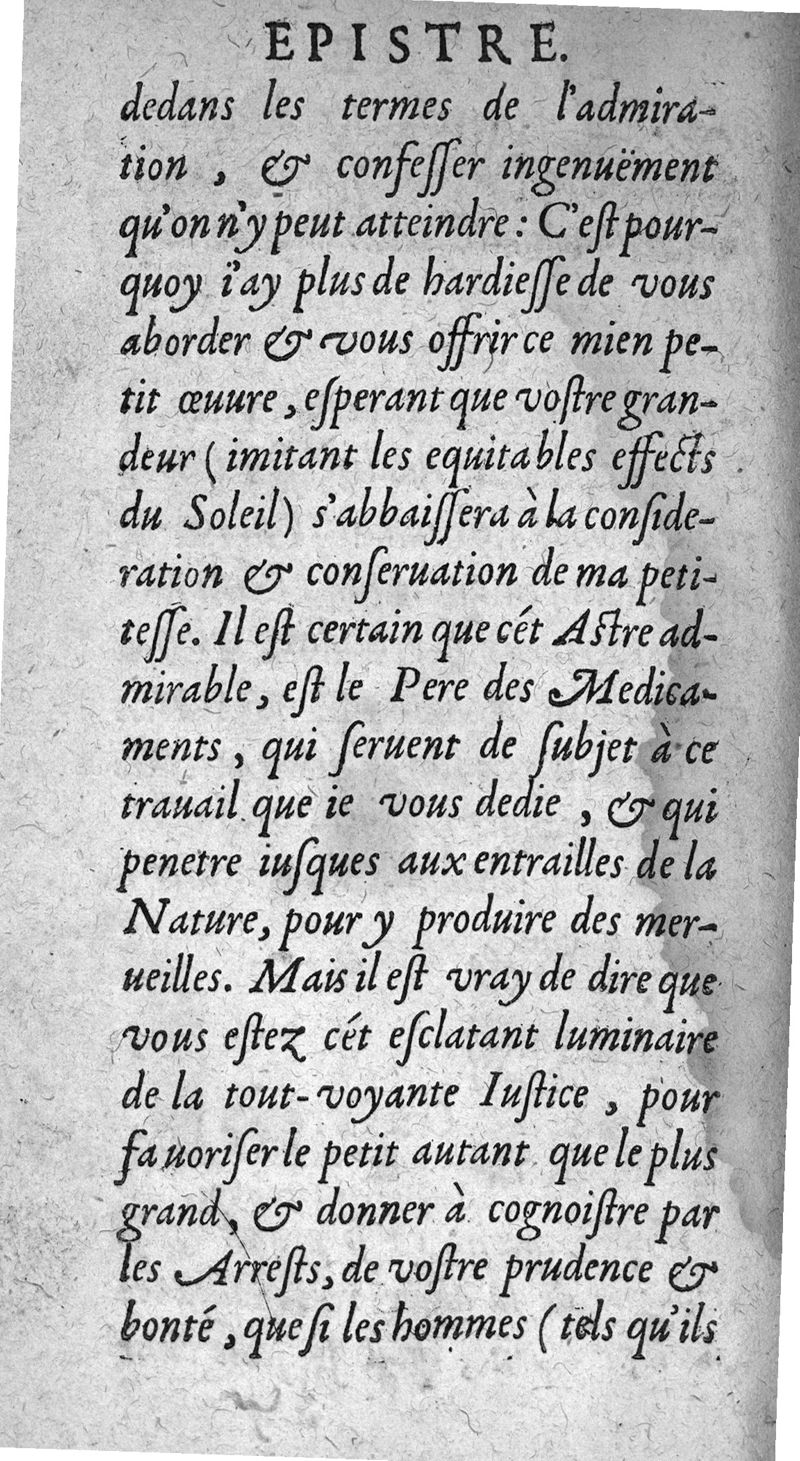 EPISTRE.
dedans les termes de l'admira-
tion , & confeſſer ingenuëment
qu'on n'y peut atteindre : C'eſt pour-
quoy i'ay plus de hardieſſe de vous
aborder & vous offrir ce mien pe-
tit œuure , eſperant que voſtre gran-
deur ( imitant les equitables effects
du Soleil) s'abbaiſſera à la conſide-
ration & conſeruation de ma peti-
teſſe. Il eſt certain que cét Aſtre ad-
mirable, eſt le Pere des Medica-
ments , qui ſeruent de ſubjet à ce
trauail que ie vous dedie , & qui
penetre iuſques aux entrailles de la
Nature, pour y produire des mer-
ueilles. Mais il eſt vray de dire que
vous eſtez cét eſclatant luminaire
de la tout-voyante Iuſtice , pour
fauoriſer le petit autant que le plus
grand, & donner à cognoiſtre par
les Arreſts, de voſtre prudence &
bonté , que ſi les hommes ( tels qu'ils